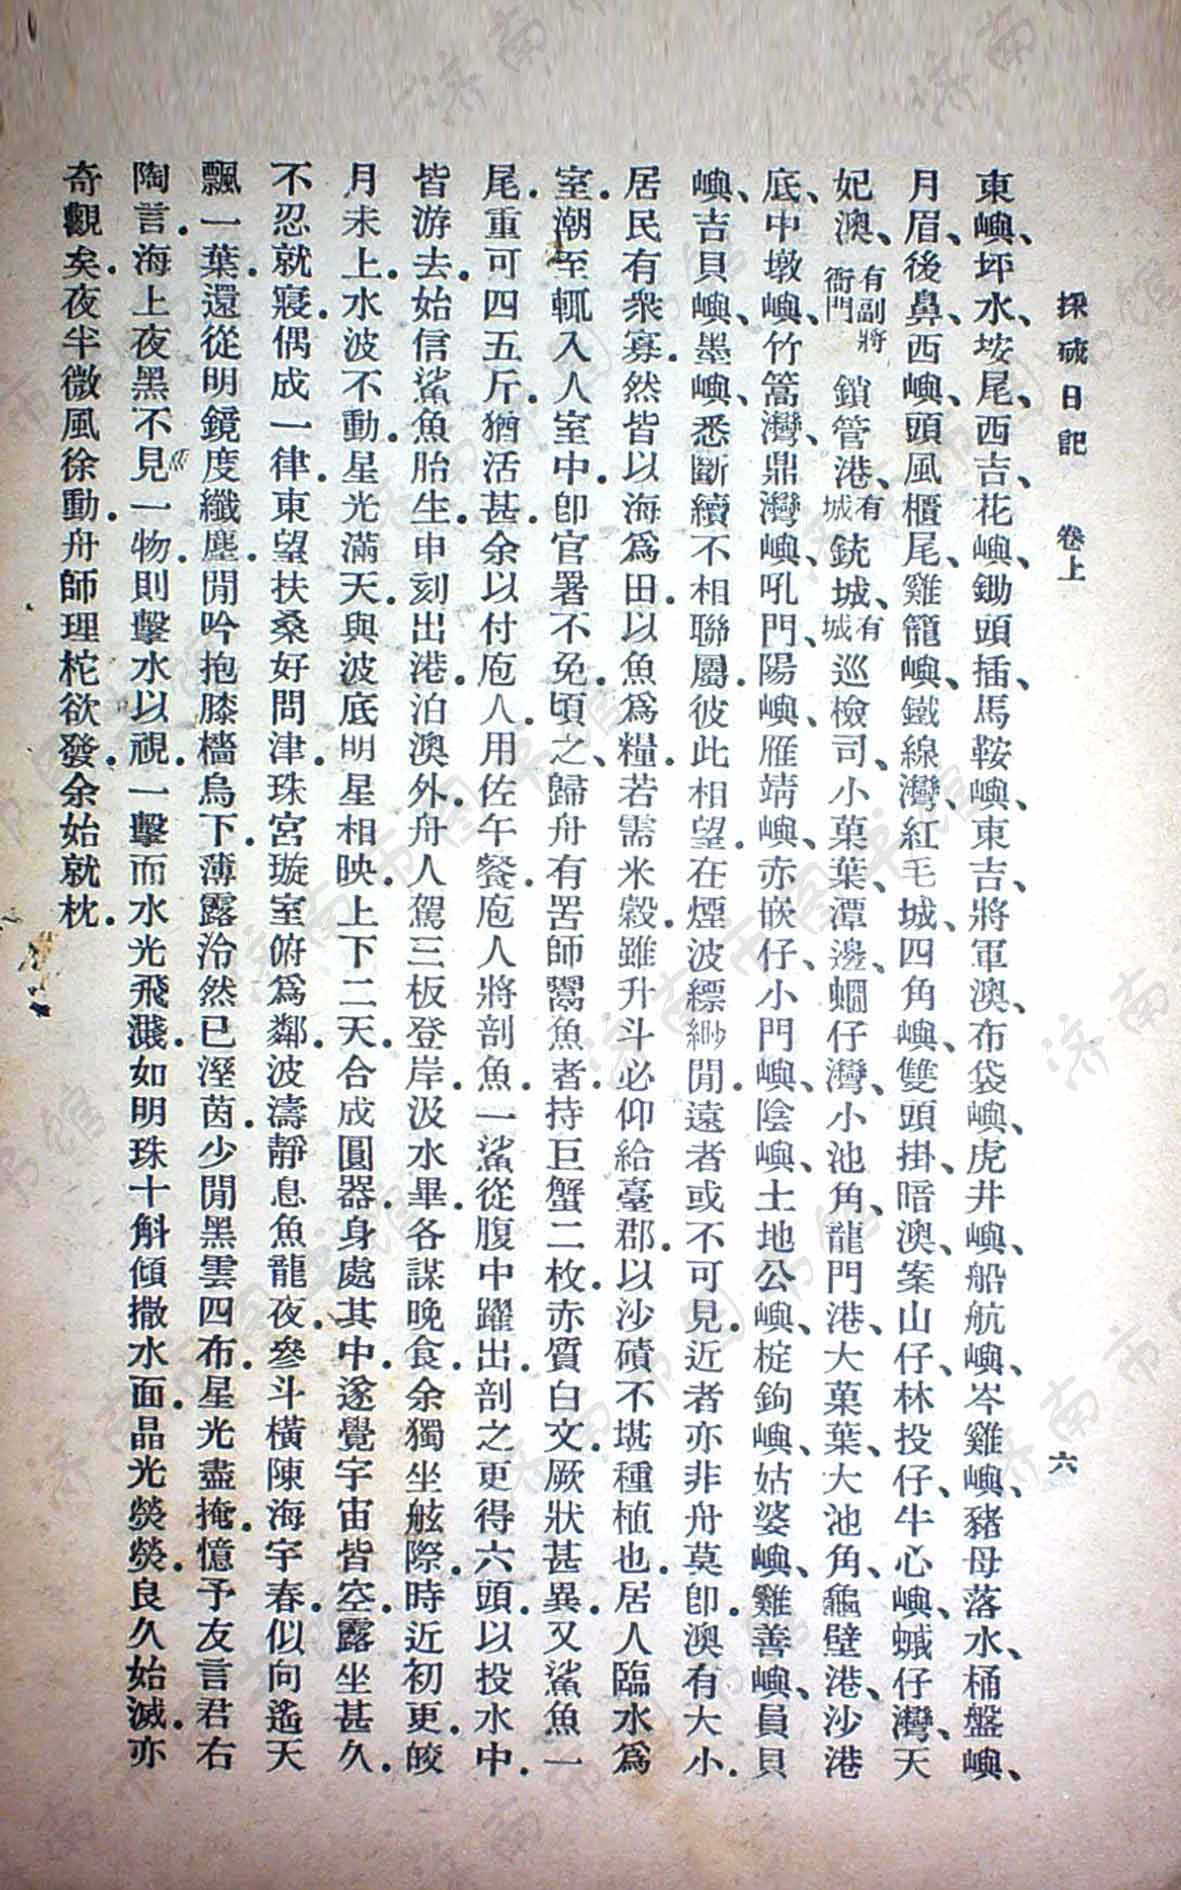 採硫日記　卷上　六
東嶼、坪水、垵尾、西吉、花嶼、鋤頭插、馬鞍嶼、東吉、將軍澳、布袋嶼、虎井嶼、船航嶼、岑雞嶼、豬母落水、桶盤嶼、
月眉、後鼻、西嶼頭、風櫃尾、雞籠嶼、鐵線灣、紅毛城、四角嶼、雙頭掛、暗澳、案山仔、林投仔、牛心嶼、蠘仔灣、天
妃澳、有副將衙門鎖管港、有城銃城、有城巡檢司、小菓葉、潭邊、蟈仔灣、小池角、龍門港、大菓葉、大池角、龜壁港、沙港
底、中墩嶼、竹篙灣、鼎灣嶼、吼門、陽嶼、雁靖嶼、赤嵌仔、小門嶼、陰嶼、土地公嶼、椗鉤嶼、姑婆嶼、雞善嶼、員貝
嶼、吉貝嶼、墨嶼、悉斷續不相聯屬。彼此相望。在煙波縹緲閒。遠者或不可見。近者亦非舟莫卽。澳有大小。
居民有衆寡。然皆以海爲田。以魚爲糧。若需米穀。雖升斗必仰給臺郡。以沙磧不堪種植也。居人臨水爲
室。潮至輒入人室中。卽官署不免。頃之、歸舟有罟師鬻魚者。持巨蟹二枚。赤質白文。厥狀甚異。又鯊魚一
尾。重可四五斤。猶活甚。余以付庖人。用佐午餐。庖人將剖魚。一鯊從腹中躍出。剖之更得六頭。以投水中。
皆游去。始信鯊魚胎生。申刻出港。泊澳外。舟人駕三板登岸。汲水畢。各謀晚食。余獨坐舷際。時近初更。皎
月未上。水波不動。星光滿天。與波底明星相映。上下二天。合成圓器。身處其中。遂覺宇宙皆空。露坐甚久。
不忍就寢。偶成一律。東望扶桑好問津。珠宮璇室俯爲鄰。波濤靜息魚龍夜。參斗橫陳海宇春。似向遙天
飄一葉。還從明鏡度纖塵。閒吟抱膝檣烏下。薄露泠然已溼茵。少閒黑雲四布。星光盡掩。憶予友言君右
陶言。海上夜黑不見一物。則擊水以視。一擊而水光飛濺。如明珠十斛傾撒水面。晶光熒熒。良久始滅。亦
奇觀矣。夜半微風徐動。舟師理柁欲發。余始就枕。
濟南市圖書館